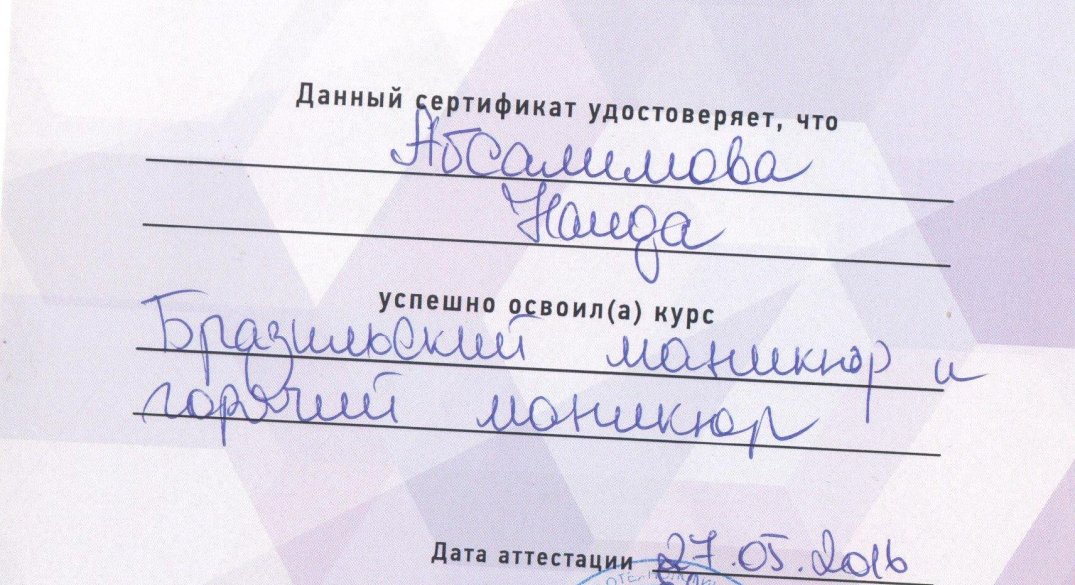 Данный сертификат удостоверяет, что
Абсалимова
Наида
успешно освоил(а) курс
Бразильский маникюр и
горячий маникюр
Дата аттестации 27.05.2016